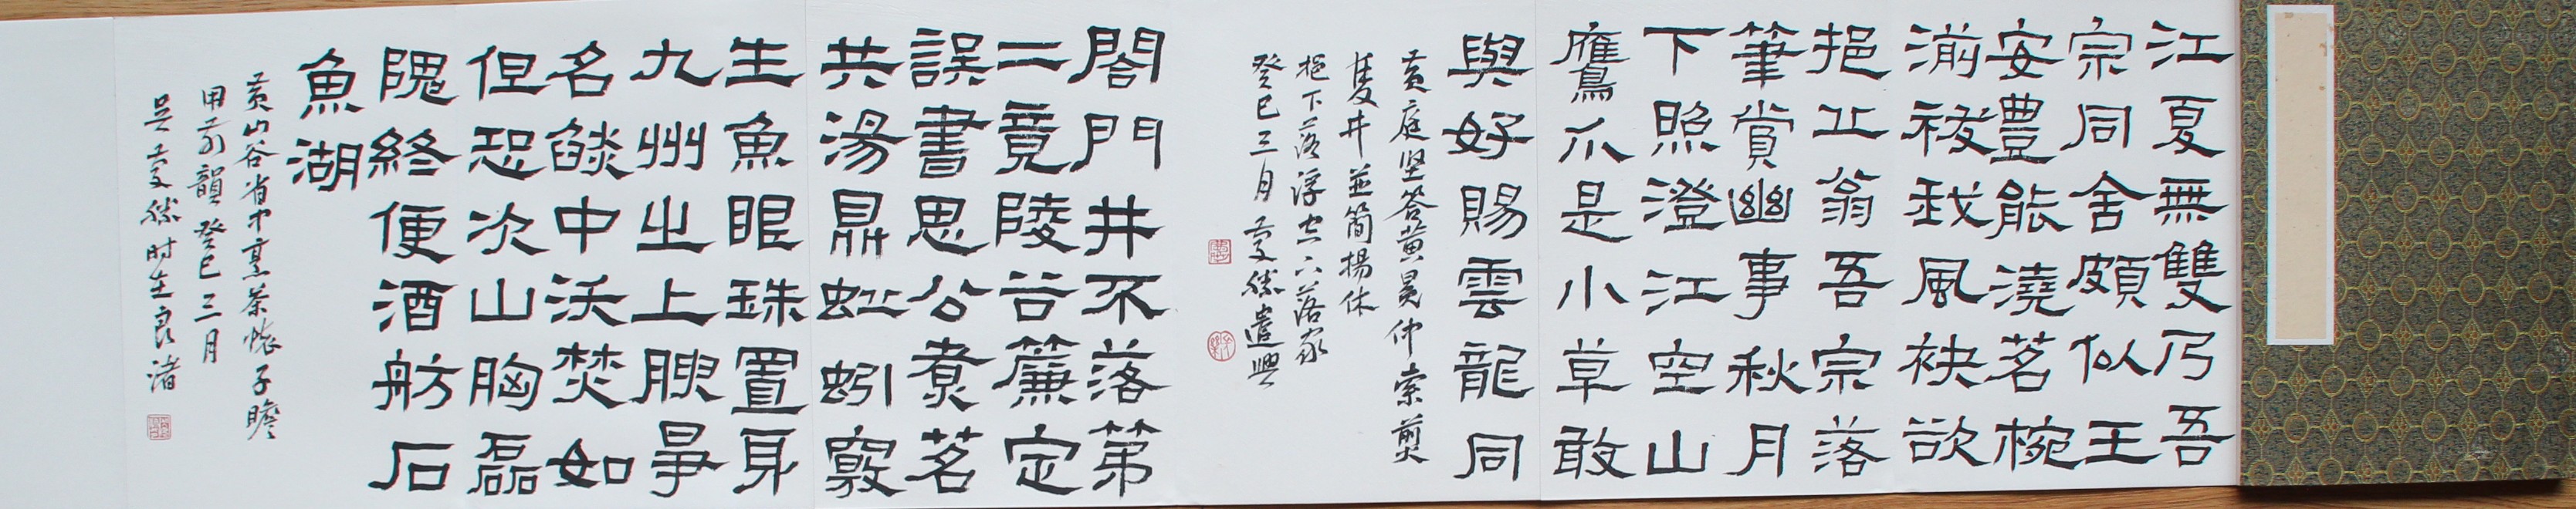 江夏無雙乃吾
宗同舍頗似王
安豐能澆茗椀
湔祓我風袂欲
挹丘翁吾宗落
筆賞幽事秋月
下照澄江空山
鷹爪是小草敢
與好賜雲龍同
黃庭坚答黄冕仲索煎
雙井並簡揚休
挹下落浮字六落家
癸巳三月 遣興
閤門井不落第
二竟陵谷簾定
誤書思公煮茗
共湯鼎蚯蚓竅
生魚眼珠置身
九州之上腴爭
名燄中沃焚如
但恐次山胸磊
隗終便酒舫石
魚湖
黃山谷省中烹茶懷子瞻
用前韻 癸巳三月
吴 时在良渚